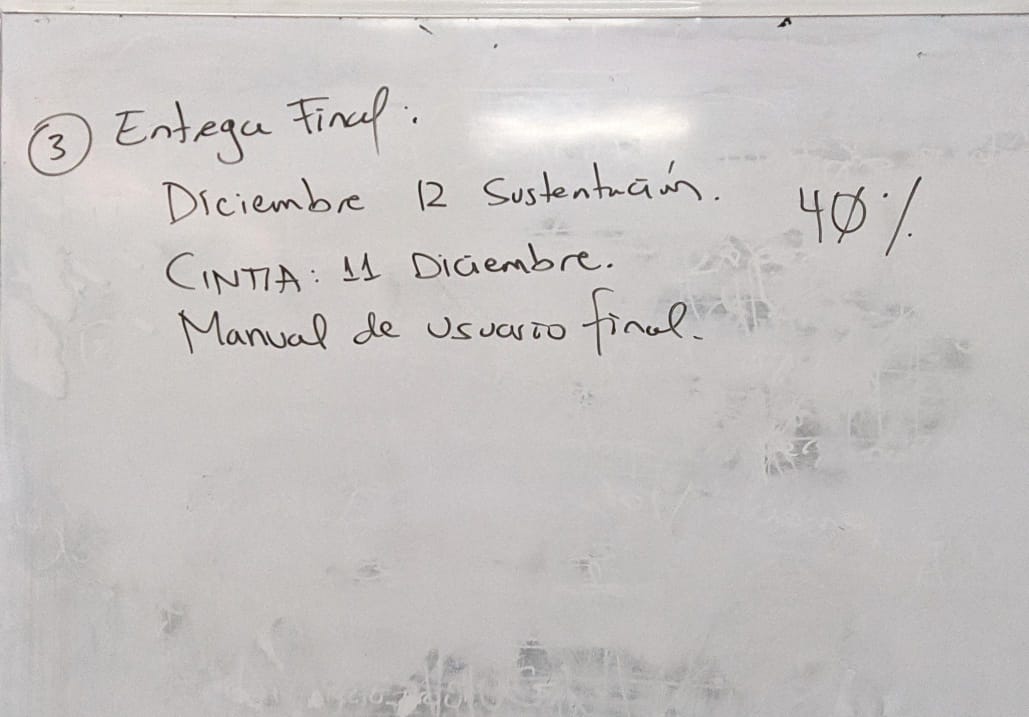 ③ Entega Final:
Diciembre 12 Sustentación. 40%
CINTIA: 11 Diciembre.
Manual de usuario final.